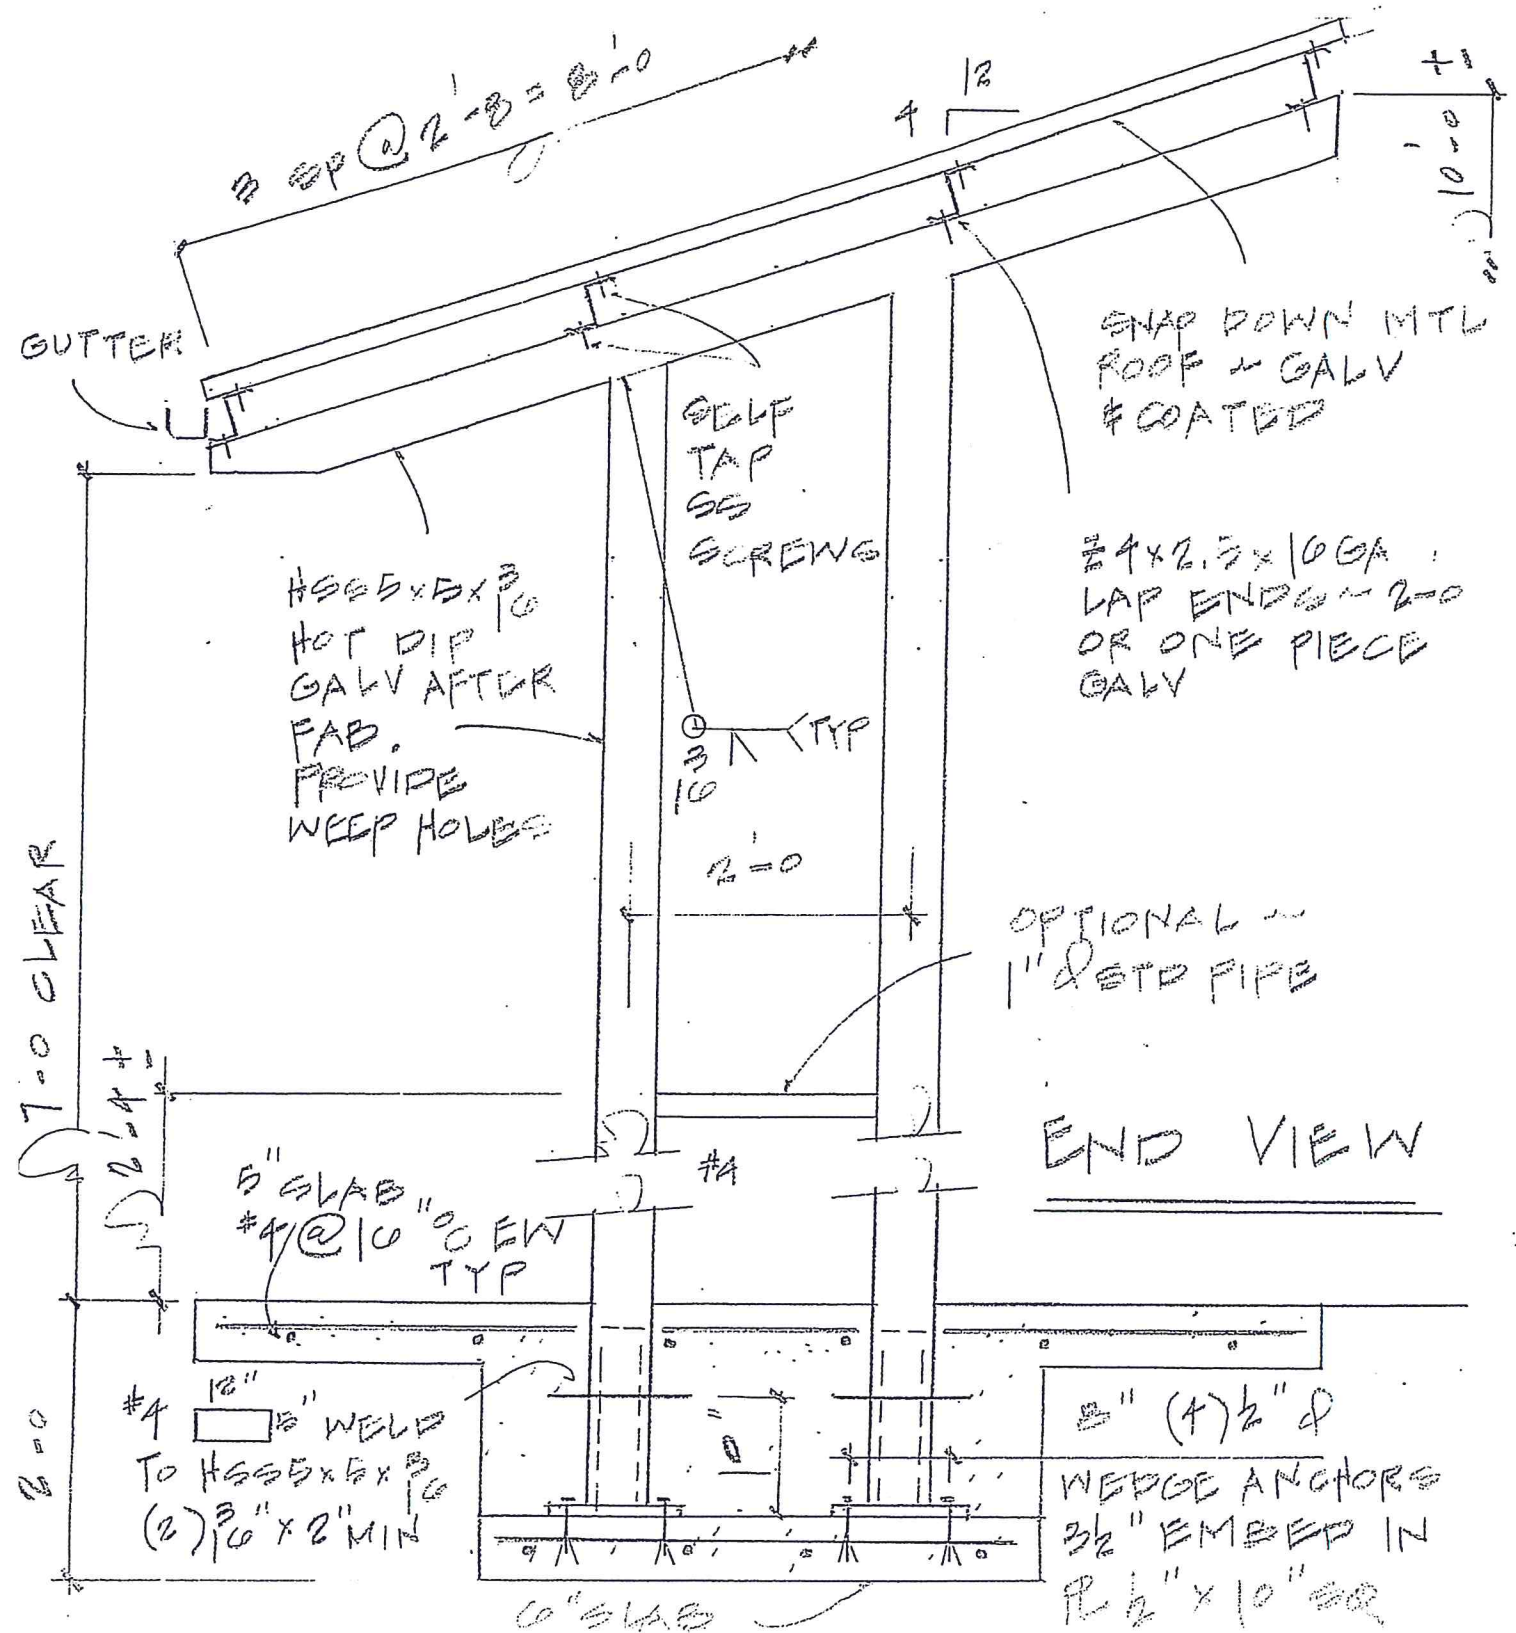 3 SP @ 2'-8 = 8'-0
12
4
±
10'-0
GUTTER
SNAP DOWN MTL
ROOF ~ GALV
& COATED
SELF
TAP
SS
SCREWS
Z 4 x 2.5 x 16 GA
LAP ENDS ~ 2-0
OR ONE PIECE
GALV
HSS 5 x 5 x 3/16
HOT DIP
GALV AFTER
FAB.
PROVIDE
WEEP HOLES
TYP
3/16
2'-0
7-0 CLEAR
2'-4 ±
OPTIONAL ~
1" Ø STD PIPE
END VIEW
#4
5" SLAB
#4 @ 16" OC EW
TYP
2-0
12"
#4 5" WELD
TO HSS 5 x 5 x 3/16
(2) 3/16" x 2" MIN
10"
8" (4) 1/2" Ø
WEDGE ANCHORS
3 1/2" EMBED IN
PL 1/2" x 10" SQ
6" SLAB